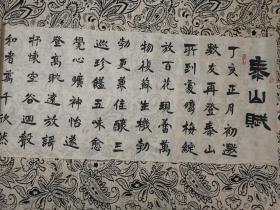 泰山賦
丁亥正月初邀
數友再登泰山
聆到憂鳴梅綻
放百花現蕾萬
物複蘇生機勃
勃更兼佳釀三
巡珍饈五味愈
覺心曠神怡遂
登高眺遠放歸
懷空谷迴聲
和者萬千欣然